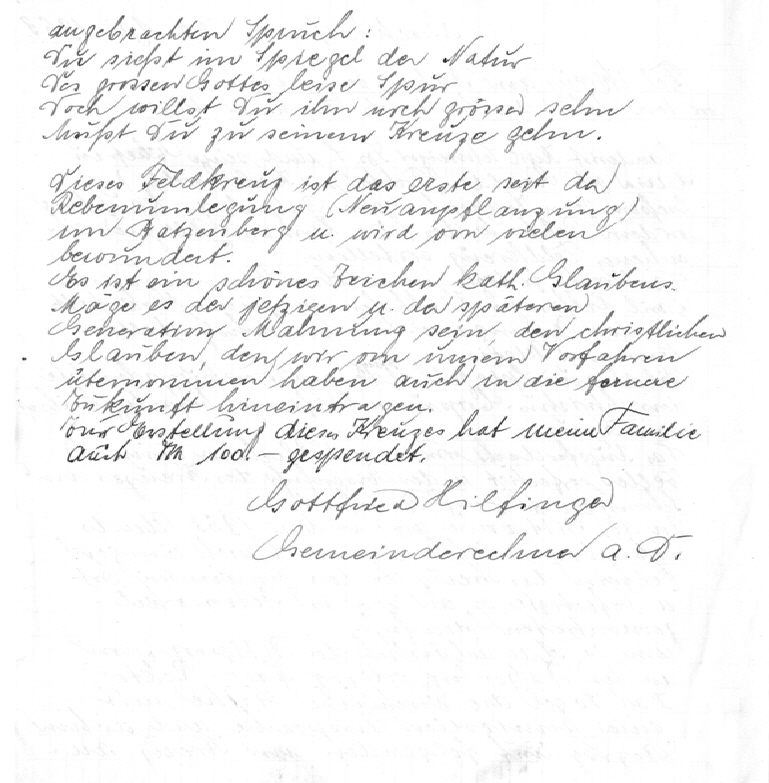 angebrachten Spruch:
Du siehst im Spiegel der Natur
Des grossen Gottes leise Spur
Doch willst Du ihn noch grösser sehn
Mußt Du zu seinem Kreuze gehn.
Dieses Feldkreuz ist das erste seit der
Rebenumlegung (Neuanpflanzung)
im Batzenberg u. wird von vielen
bewundert.
Es ist ein schönes Zeichen kath. Glaubens.
Möge es der jetzigen u. der späteren
Generation Mahnung sein, den christlichen
Glauben, den wir von unsern Vorfahren
übernommen haben auch in die fernere
Zukunft hineintragen.
Zur Erstellung dieses Kreuzes hat meine Familie
auch DM 100.- gespendet.
Gottfried Hilfinger
Gemeinderechner a. D.